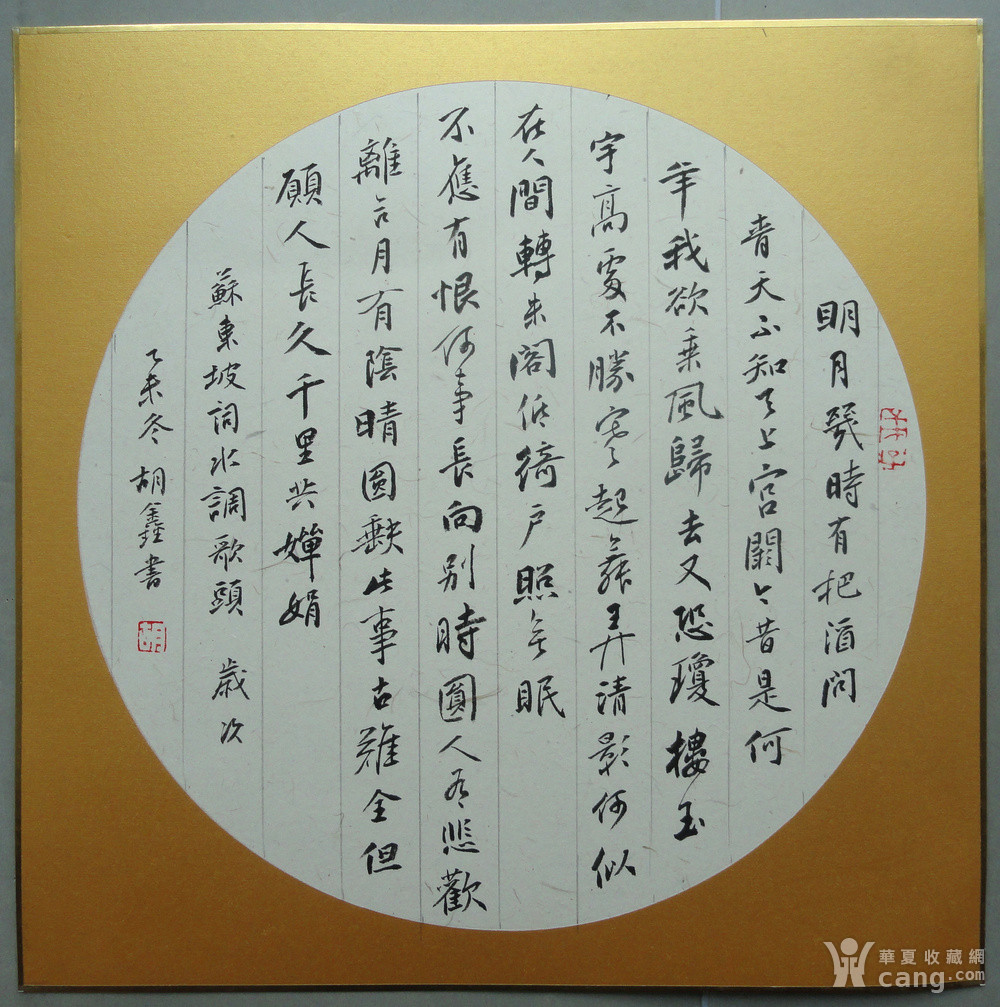 明月幾時有把酒問
青天不知天上宮闕今昔是何
年我欲乘風歸去又恐瓊樓玉
宇高處不勝寒起舞弄清影何似
在人間轉朱閣低綺戶照無眠
不應有恨何事長向別時圓人有悲歡
離合月有陰晴圓缺此事古難全但
願人長久千里共嬋娟
蘇東坡詞水調歌頭 歲次
乙未冬 胡鑫書
胡
華夏收藏網
cang.com